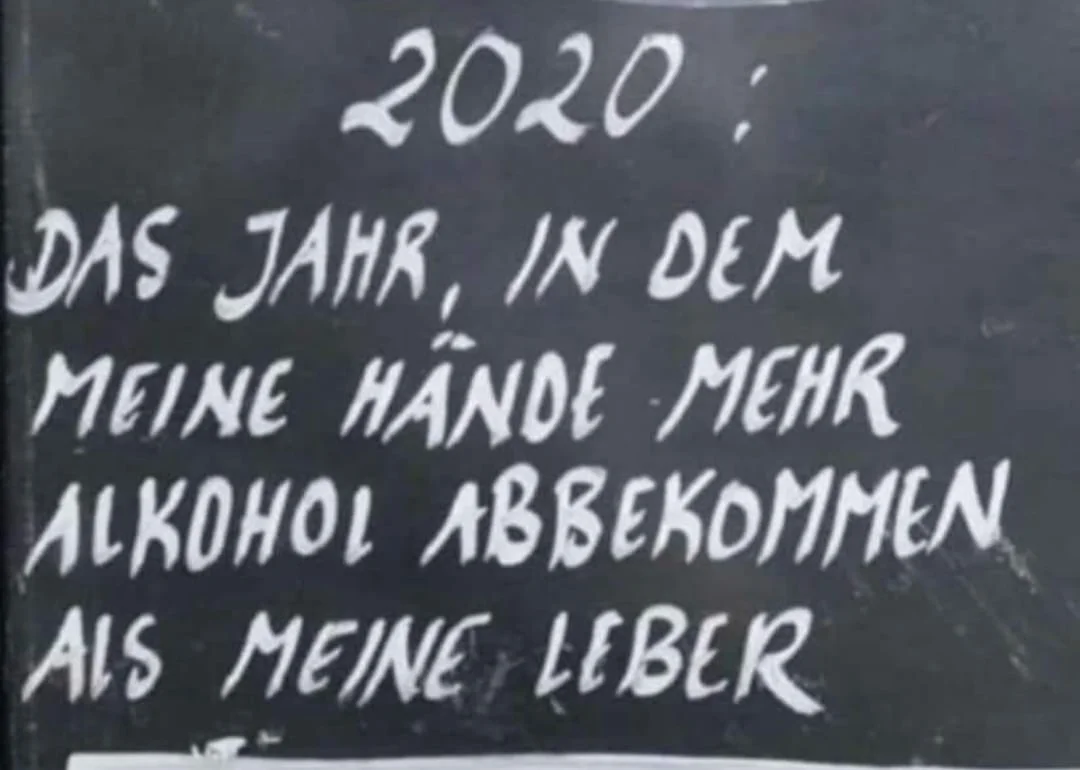 2020:
DAS JAHR, IN DEM
MEINE HÄNDE MEHR
ALKOHOL ABBEKOMMEN
ALS MEINE LEBER